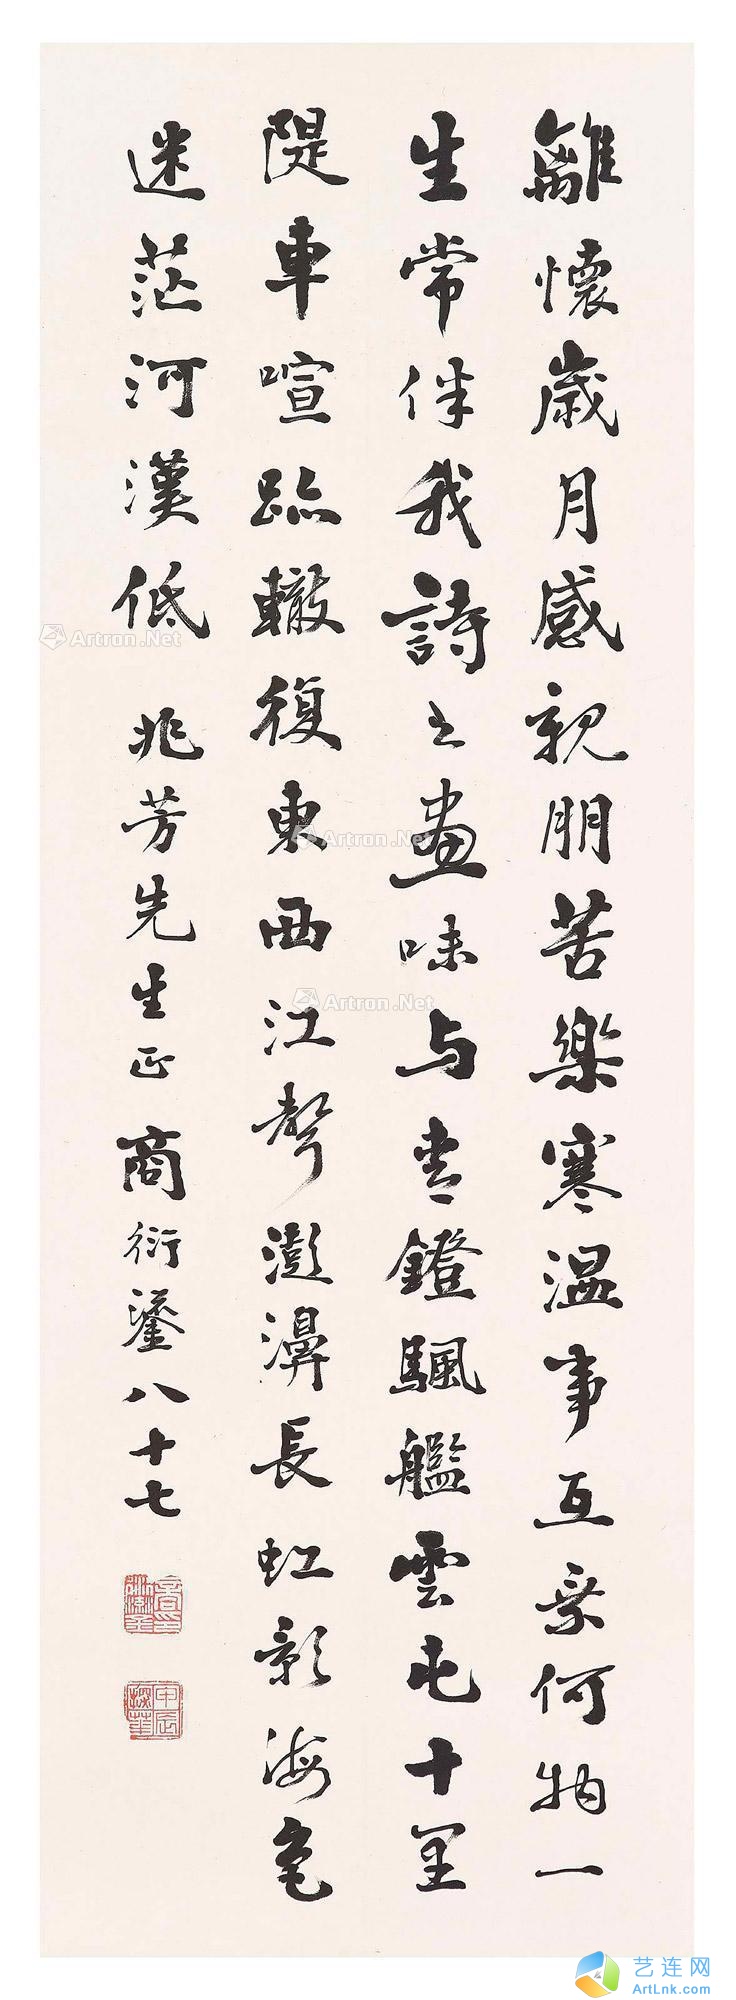 離懷歲月感親朋苦樂寒温事互乘何物一
生常伴我詩畫味与書鐙颿艦雲屯十里
隄車喧跡轍復東西江聲澎濞長虹影海色
迷茫河漢低 兆芳先生正 商衍鎏八十七
甲辰探華
Artron.Net
Artron.Net
Artron.Net
艺连网
ArtLnk.com